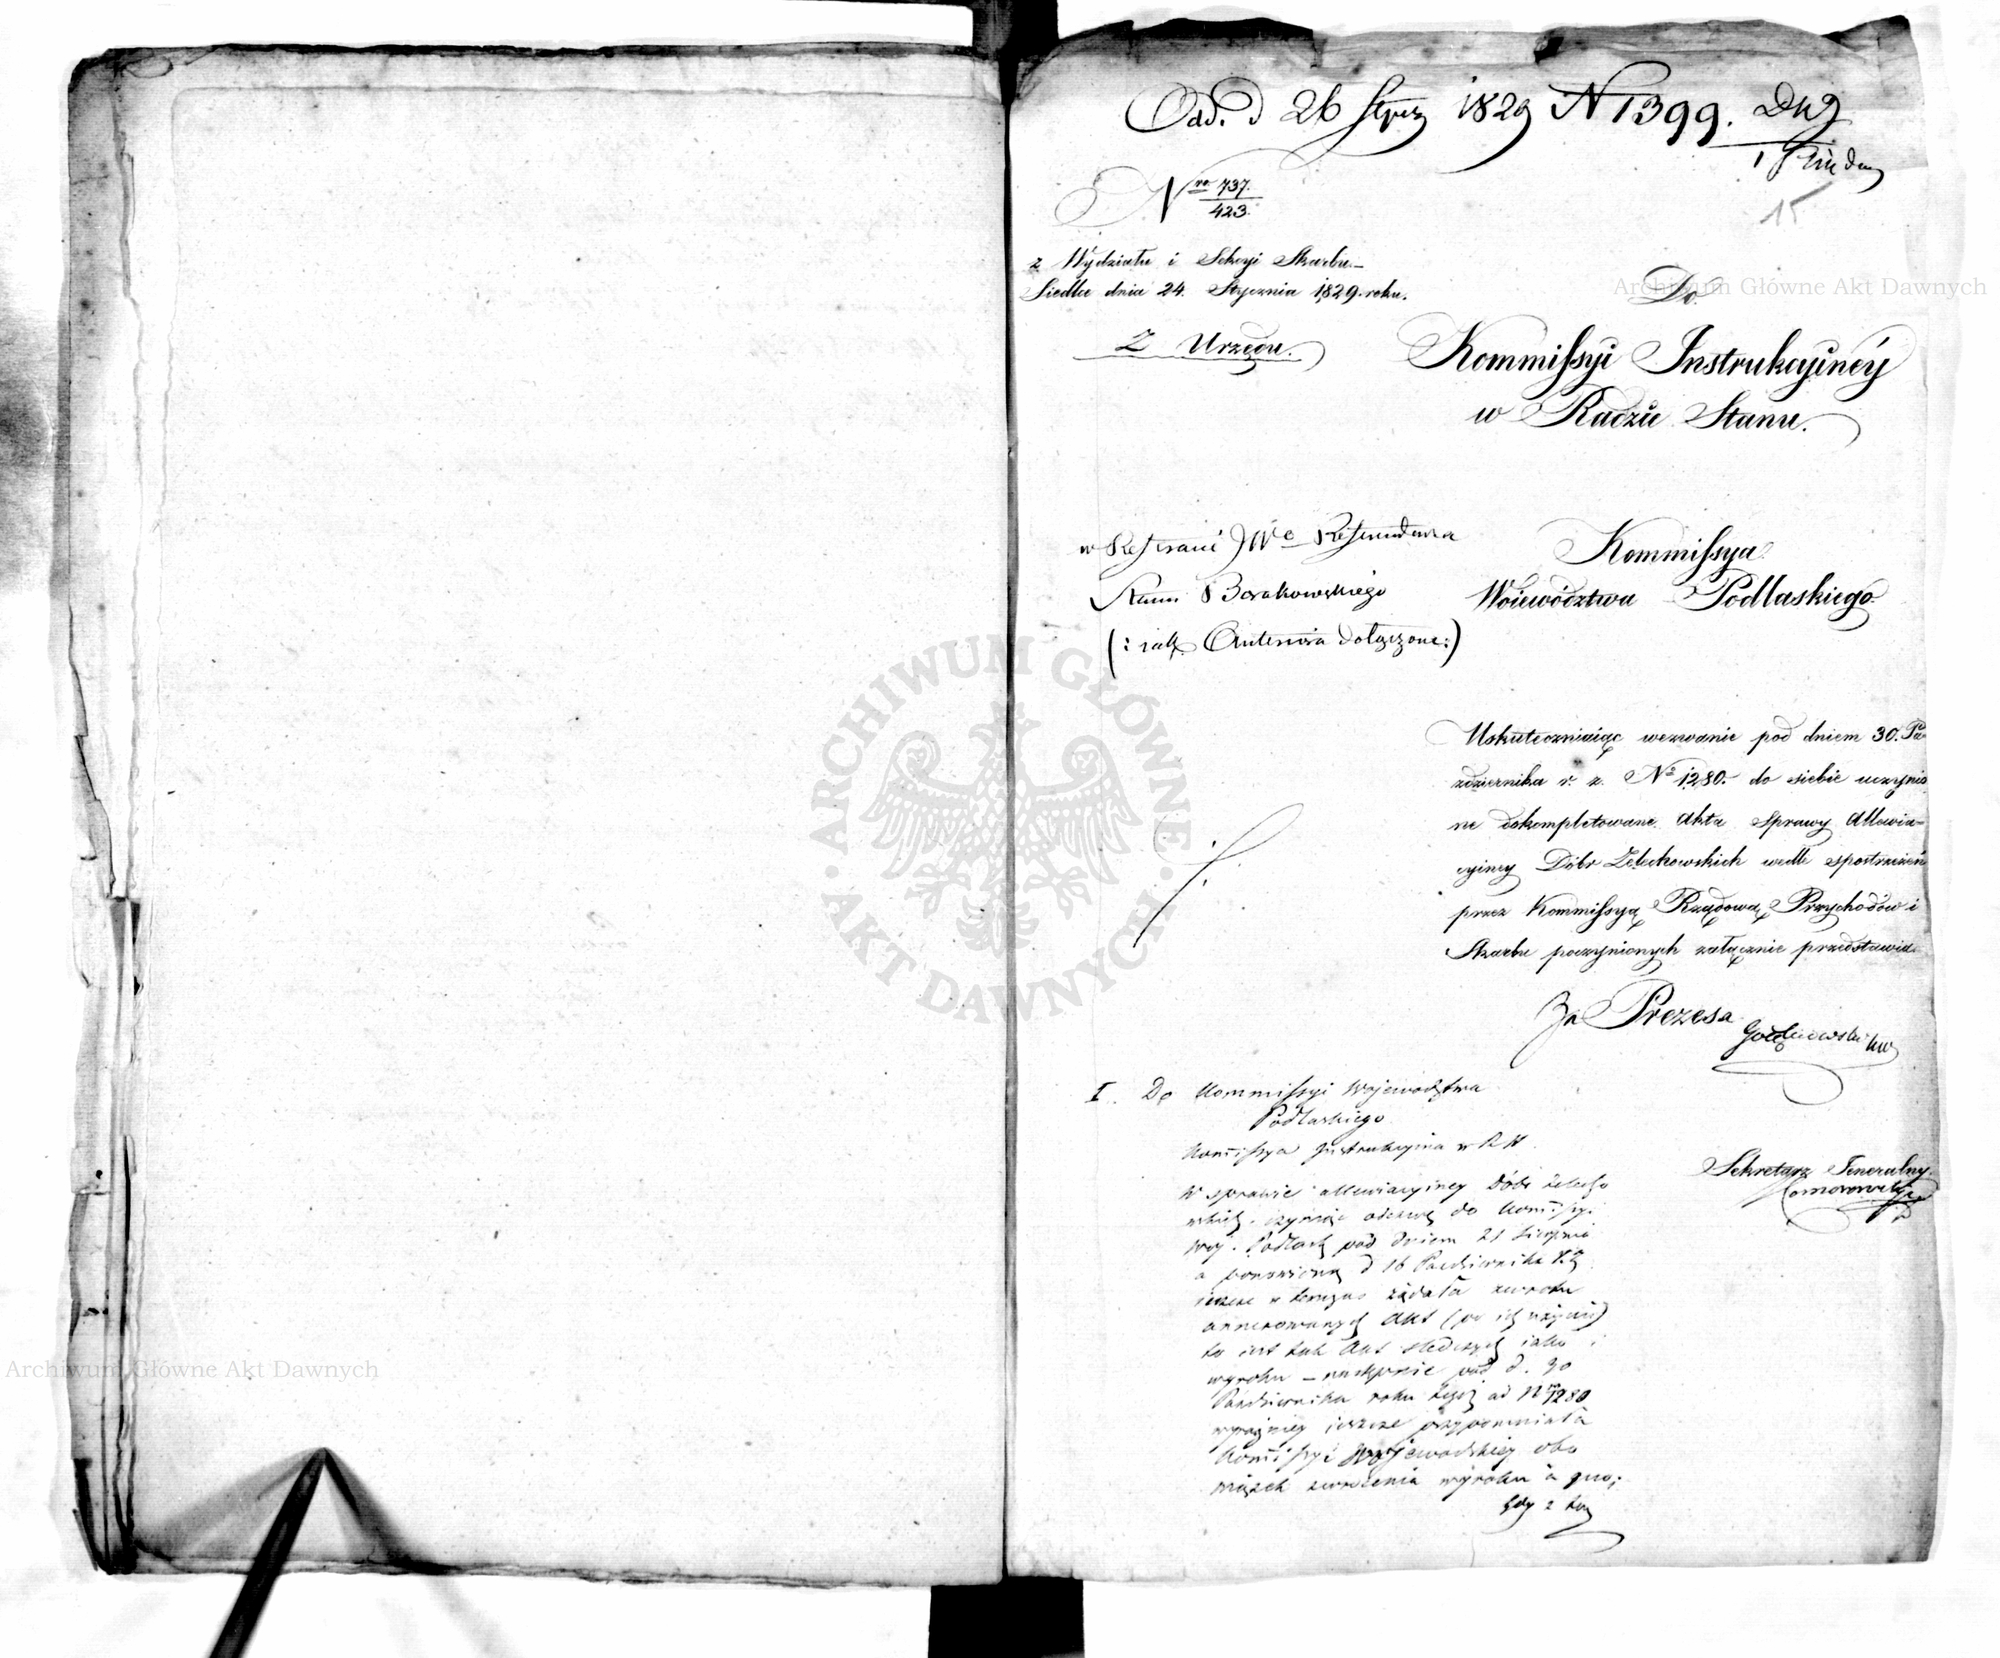 Odd. d 26 Stycz 1829 N 1399.
15
Nro 737.
423.
z Wydziału i Sekcyi Skarbu.
Siedlce dnia 24. Stycznia 1829. roku.
Z Urzędu.
Do
Kommissyi Instrukcyinéy
w Radzie Stanu.
w Referacie JWe Referendarza
Stanu Borakowskiego
(: iak Anteriora dołączone :)
Kommissya
Woiewództwa Podlaskiego
Uskuteczniaiąc wezwanie pod dniem 30. Pa-
ździernika r. z. No 1280. do siebie uczynio
ne dokompletowane Akta sprawy Allewia-
cyiney Dóbr Żelechowskich wedle spostrzeżeń
przez Kommissyą Rządową Przychodów i
Skarbu poczynionych załącznie przedstawia.
Za Prezesa
Sekretarz Jeneralny
I. Do Kommissyi Wojewodztwa
Podlaskiego
Kommissya Instrukcyina w R. St.
W sprawie allewiacyiney Dóbr Żelecho
wskich, czyniąc odezwę do Kommissyi
Woj. Podlask pod dniem 21 Sierpnia
a ponowioną d 16 Pazdziernika
żądała zwrotu
annexowanych Akt (po ich użyciu)
to iest tak Akt śledczych iako i
wyroku – następnie pod d. 30
Pazdziernika roku tegoż ad No 1280
wyraźniey ieszcze przypomniała
Kommissyi Wojewodzkiey obo
wiązek zwrócenia wyroku a quo;
Gdy z tey
ARCHIWUM GŁÓWNE AKT DAWNYCH
Archiwum Główne Akt Dawnych
Archiwum Główne Akt Dawnych